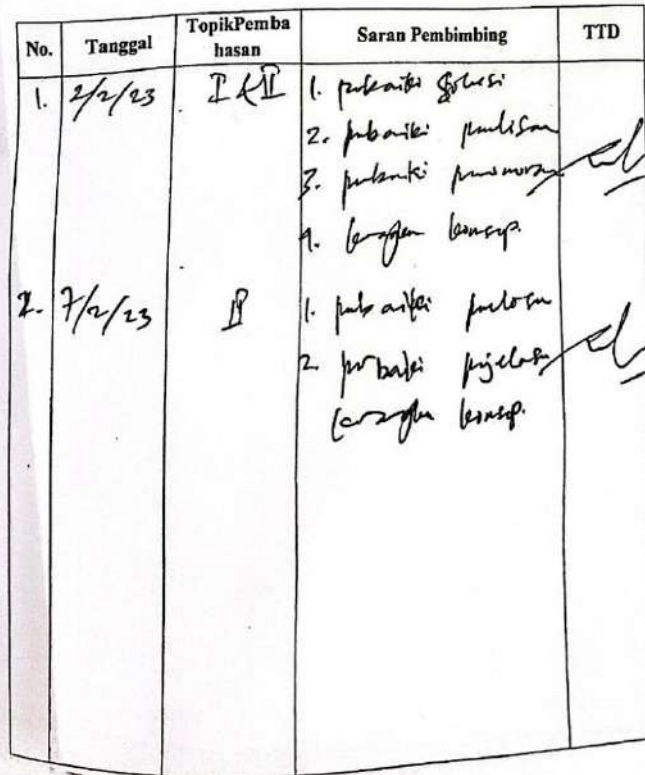 No. Tanggal TopikPemba hasan Saran Pembimbing TTD
1. 2/2/23 I & II 1. perbaiki
2. perbaiki penulisan
3. perbaiki penomoran
4. kerangka konsep.
2. 7/2/23 II 1. perbaiki
2. perbaiki penjelasan
kerangka konsep.